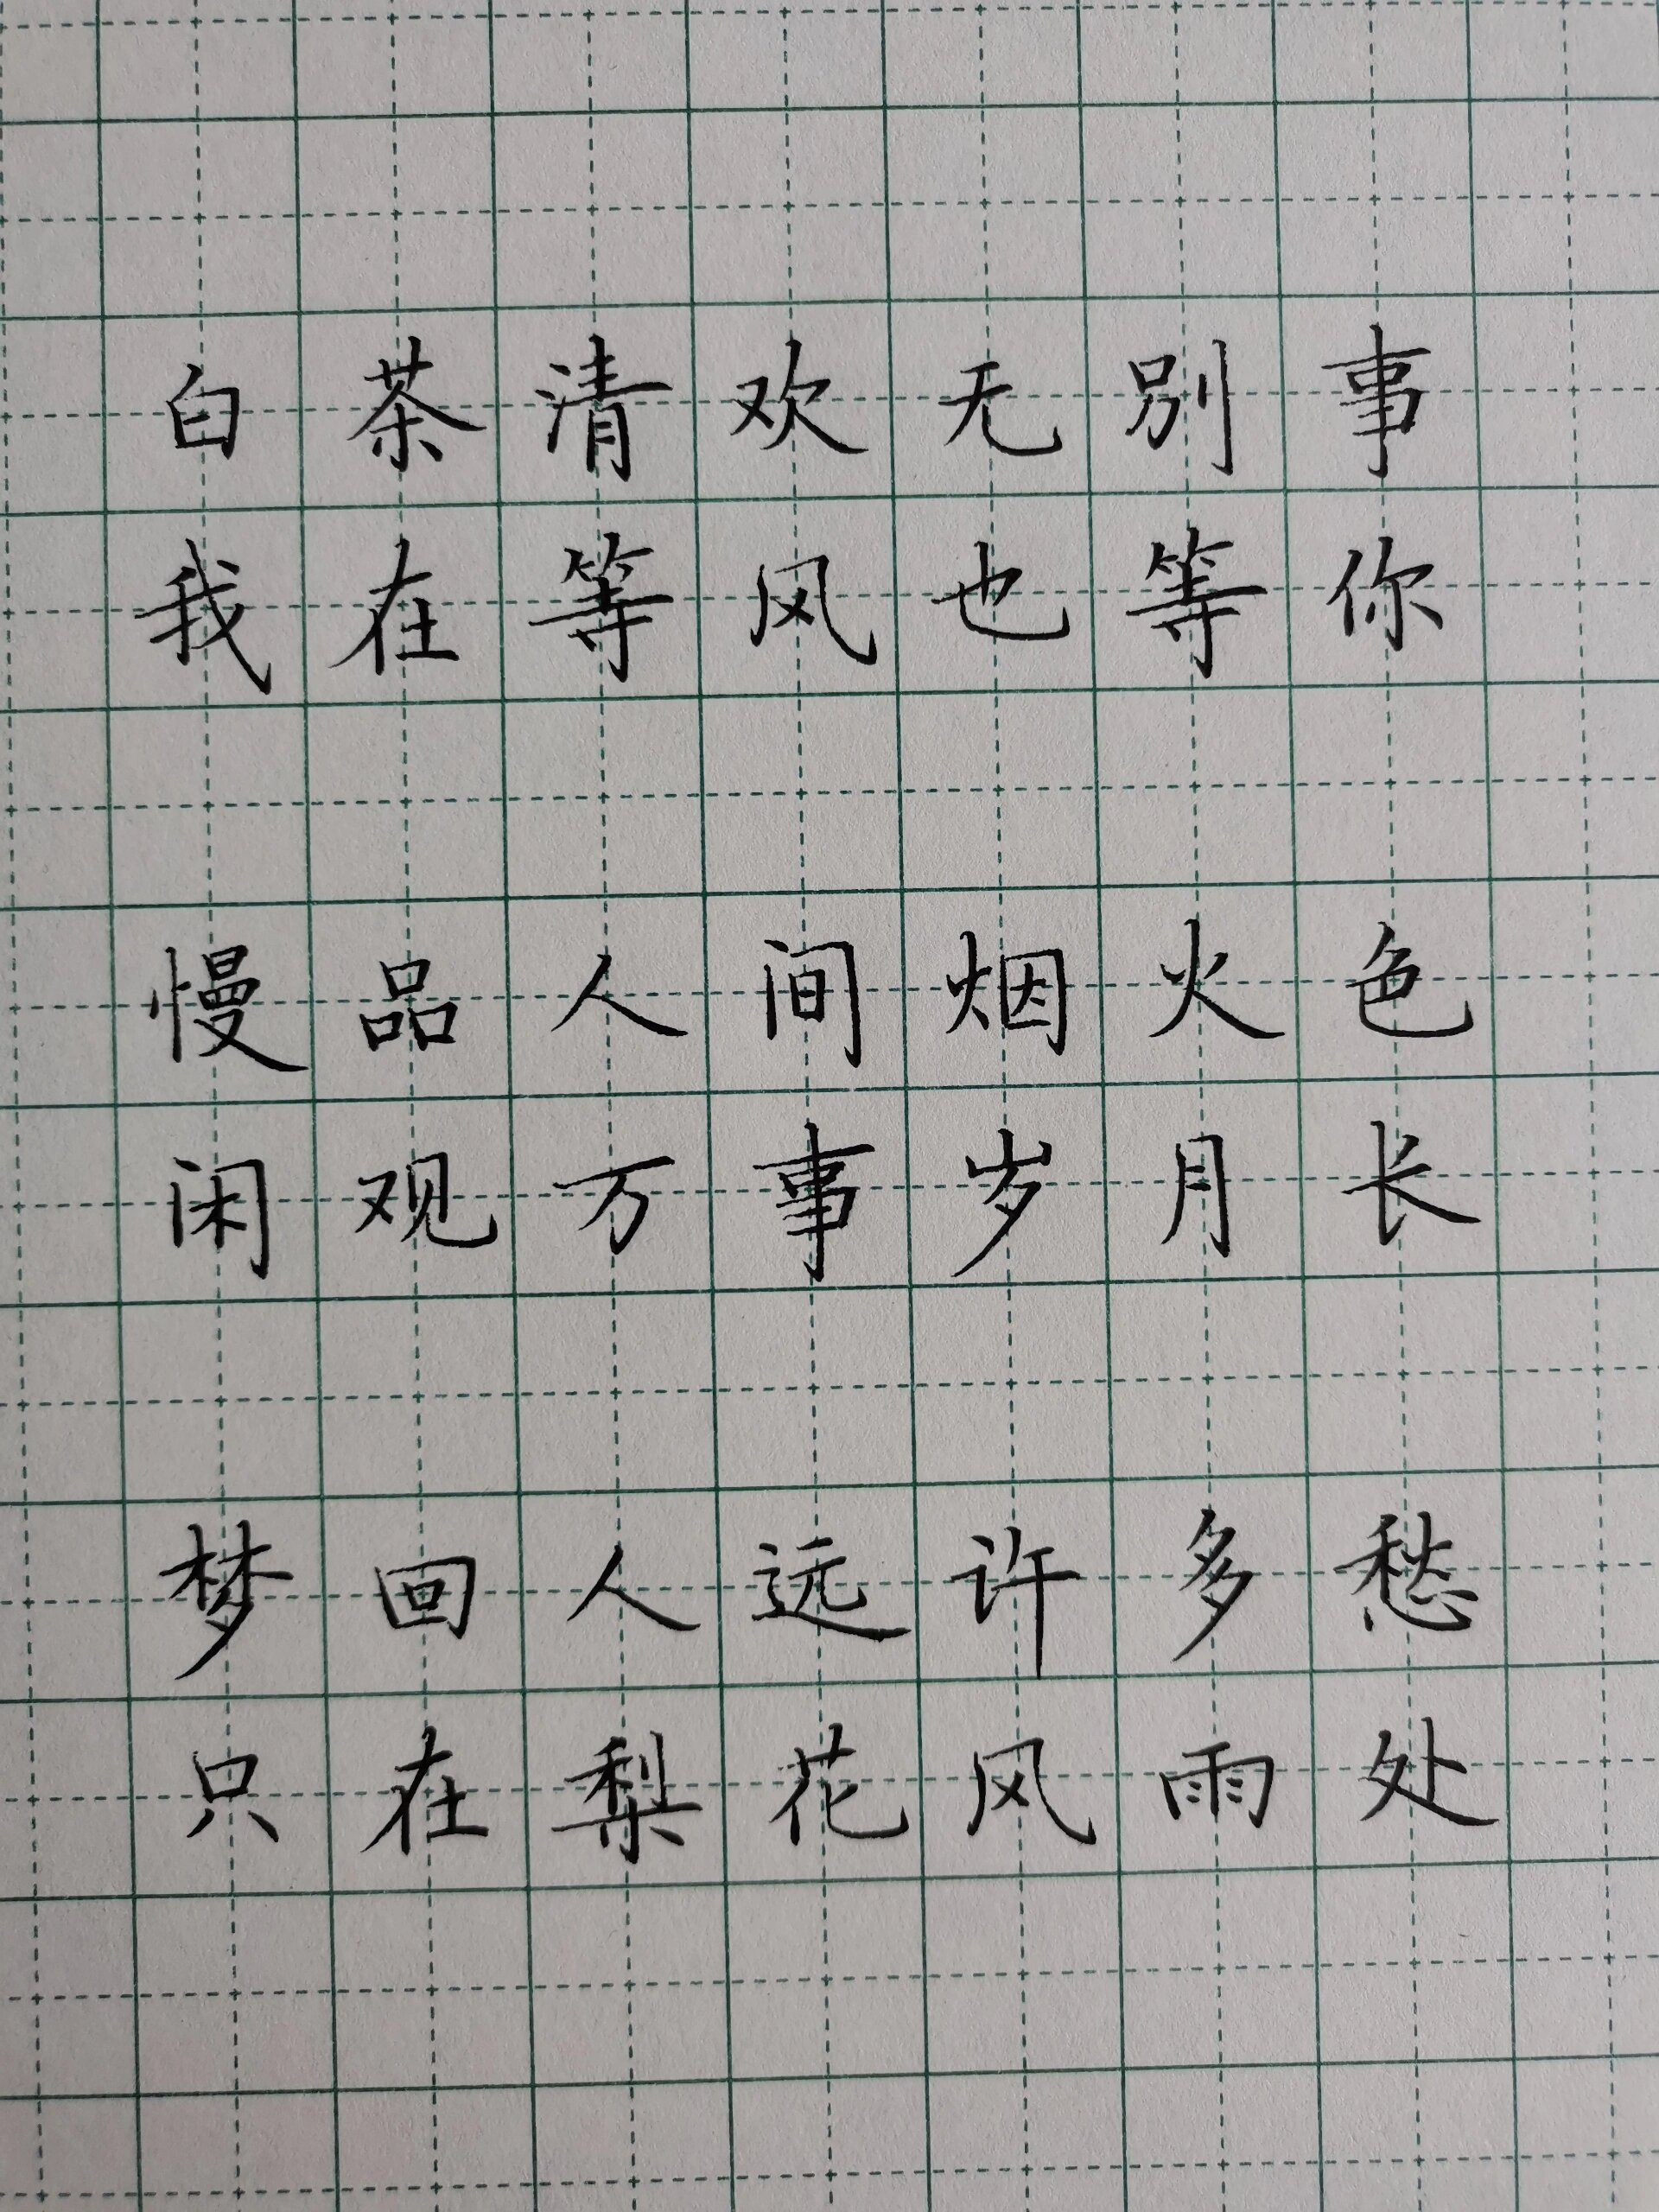 白茶清欢无别事
我在等风也等你
慢品人间烟火色
闲观万事岁月长
梦回人远许多愁
只在梨花风雨处